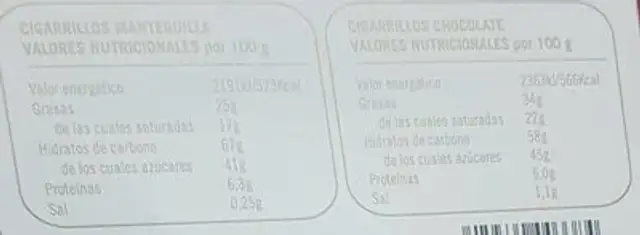 CIGARRILLOS MANTEQUILLA
VALORES NUTRICIONALES por 100 g
Valor energético 2191kJ/523kcal
Grasas 25g
de las cuales saturadas 17g
Hidratos de carbono 67g
de los cuales azúcares 41g
Proteínas 6,3g
Sal 0,25g
CIGARRILLOS CHOCOLATE
VALORES NUTRICIONALES por 100 g
Valor energético 2363kJ/566kcal
Grasas 34g
de las cuales saturadas 22g
Hidratos de carbono 58g
de los cuales azúcares 45g
Proteínas 6,0g
Sal 1,1g